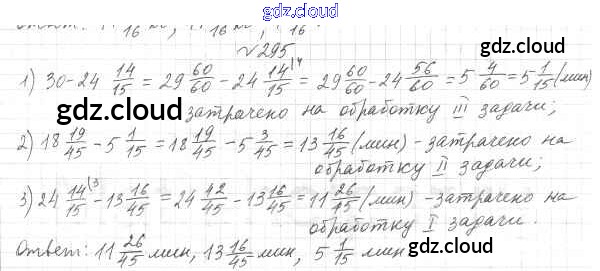 gdz.cloud
№295
1) 30-24 14/15 = 29 60/60 - 24 14/15 \4 = 29 60/60 - 24 56/60 = 5 4/60 = 5 1/15 (мин)
gdz.cloud
затрачено на обработку III задачи;
2) 18 19/45 - 5 1/15 = 18 19/45 - 5 3/45 = 13 16/45 (мин) - затрачено на
обработку II задачи;
3) 24 14/15 \3 - 13 16/45 = 24 42/45 - 13 16/45 = 11 26/45 (мин) - затрачено на
обработку I задачи.
Ответ: 11 26/45 мин, 13 16/45 мин, 5 1/15 мин
gdz.cloud
gdz.cloud
gdz.cloud